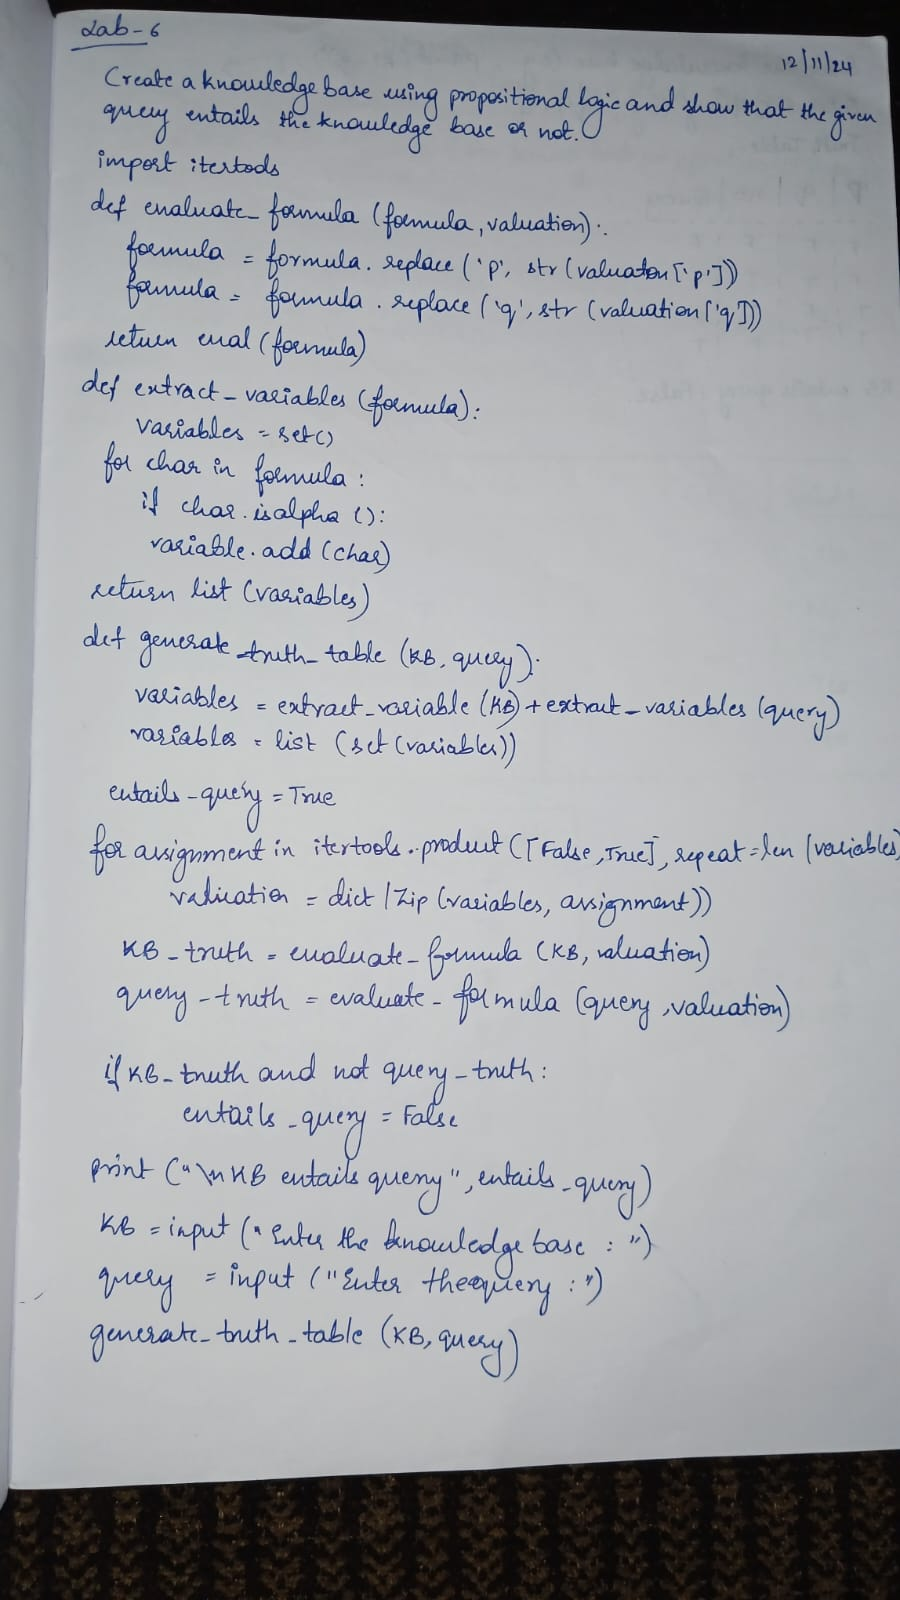 Lab-6
12/11/24
Create a knowledge base using propositional logic and show that the given
query entails the knowledge base or not.
import itertools
def evaluate_formula (formula, valuation):
formula = formula.replace ('p', str (valuation['p'])
formula = formula.replace ('q', str (valuation['q]))
return eval (formula)
def extract_variables (formula):
variables = set()
for char in formula:
if char.isalpha ():
variable.add (char)
return list (variables)
def generate_truth_table (KB, query):
variables = extract_variable (KB) + extract_variables (query)
variables = list (set (variables))
entails_query = True
for assignment in itertools.product ([False, True], repeat = len (variables)
valuation = dict (zip (variables, assignment))
KB_truth = evaluate_formula (KB, valuation)
query_truth = evaluate_formula (query, valuation)
if KB_truth and not query_truth:
entails_query = False
print ("\nKB entails query", entails_query)
KB = input ("Enter the knowledge base : ")
query = input ("Enter the query : ")
generate_truth_table (KB, query)